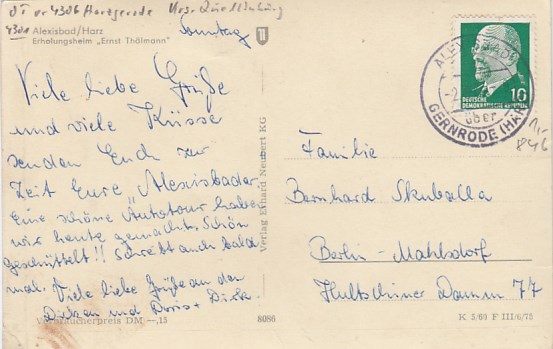 OT v. 4306 Harzgerode Krs. Quedlinburg
4301 Alexisbad/Harz
Erholungsheim „Ernst Thälmann"
Sonntag
Viele liebe Grüße
und viele Küsse
senden Euch zur
Zeit Eure Alexisbader
Eine schöne Autotour haben
wir heute gemacht. Schön
geschüttelt!! Schreibt auch bald
mal. Viele liebe Grüße an den
und Doris + Dirk.
Verbraucherpreis DM —,15
8086
Verlag Erhard Neubert KG
ALEXISBAD
über
GERNRODE (HARZ)
10
DEUTSCHE
DEMOKRATISCHE REPUBLIK
1,-
846
Familie
Bernhard Skuballa
Berlin-Mahlsdorf
Hultschiner Damm 77
K 5/69 F III/6/75